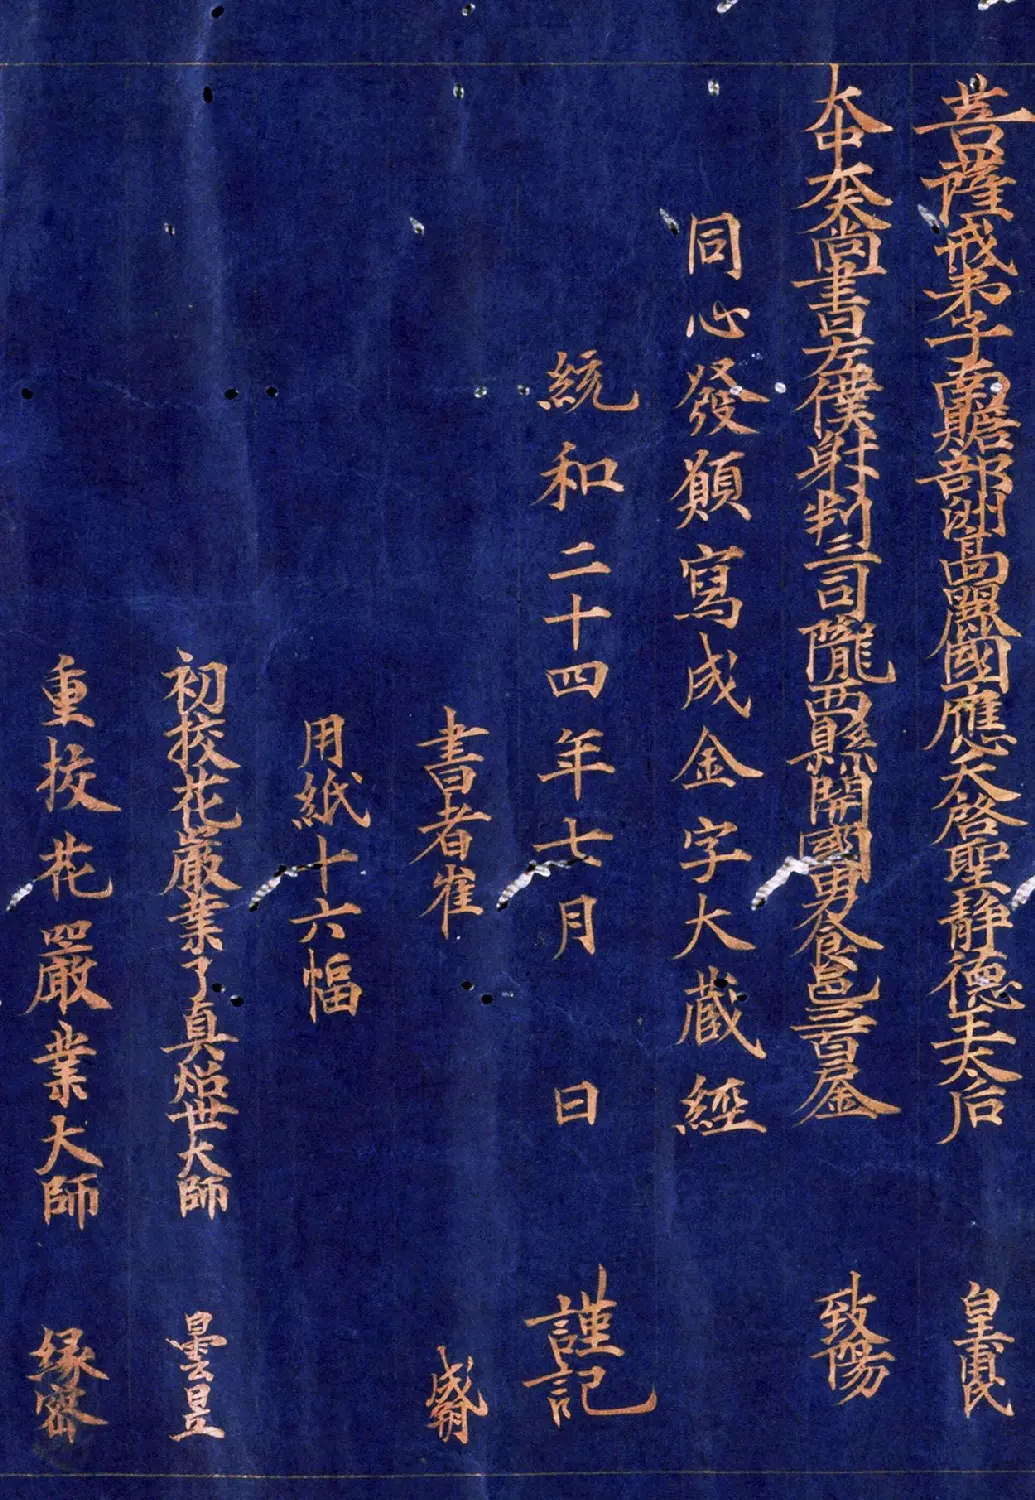 菩薩戒弟子南贍部洲髙麗國應天啓聖静德王太后 皇甫氏
大中大夫尚書左僕射判三司隴西縣開國男食邑三百户金 致陽
同心發願寫成金字大蔵經
統和二十四年七月 日 謹記
書者崔
用紙十六幅
初挍花嚴業了真炤世大師 曇昱
重挍花嚴業大師 緣密